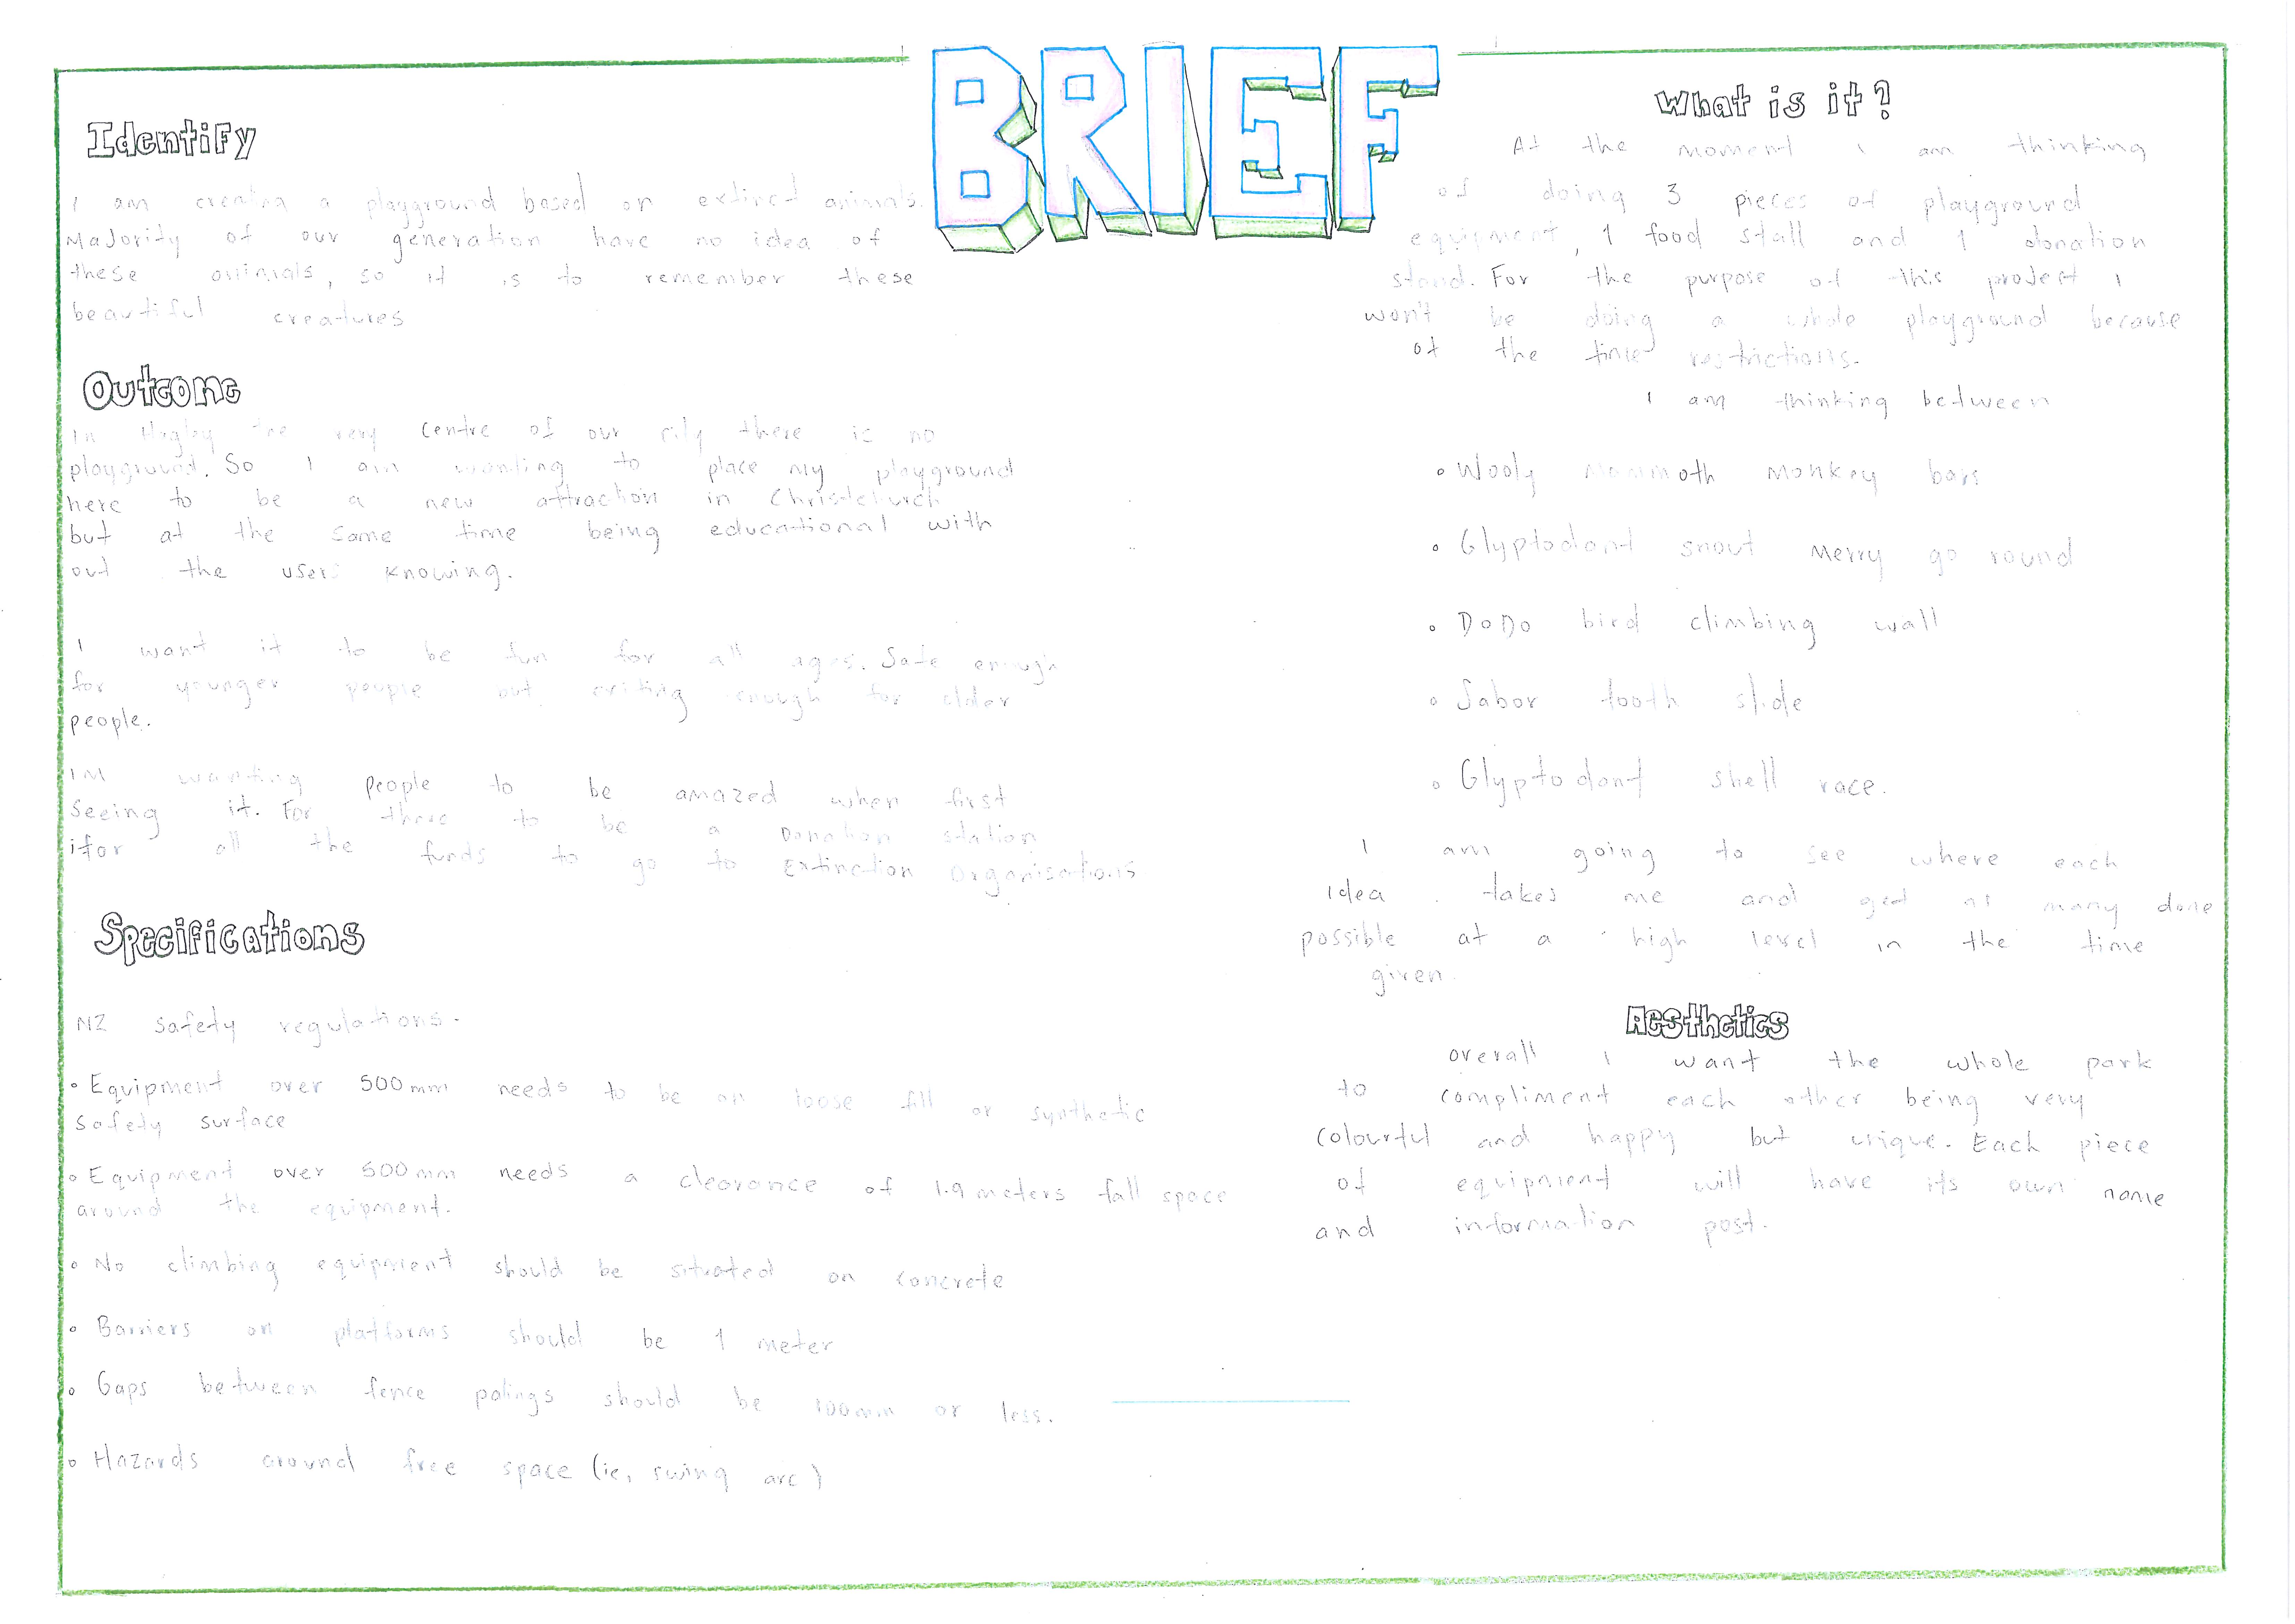 BRIEF
Identify
I am creating a playground based on extinct animals.
Majority of our generation have no idea of
these animals, so it is to remember these
beautiful creatures
Outcome
In Hagley the very centre of our city there is no
playground. So I am wanting to place my playground
here to be a new attraction in Christchurch
but at the same time being educational with
out the users knowing.
I want it to be fun for all ages. Safe enough
for younger people but exciting enough for older
people.
IM wanting people to be amazed when first
seeing it. For there to be a Donation station
ifor all the funds to go to Extinction Organisations
Specifications
NZ safety regulations.
• Equipment over 500mm needs to be on loose fill or synthetic
safety surface
• Equipment over 500mm needs a clearance of 1.9 meters fall space
around the equipment.
• No climbing equipment should be situated on concrete
• Barriers on platforms should be 1 meter
• Gaps between fence palings should be 100mm or less.
• Hazards around free space (ie, swing arc)
What is it?
At the moment I am thinking
of doing 3 pieces of playground
equipment, 1 food stall and 1 donation
stand. For the purpose of this project I
won't be doing a whole playground because
of the time restrictions.
I am thinking between
• Wooly mammoth monkey bars
• Glyptodont snout merry go round
• DoDo bird climbing wall
• Sabor tooth slide
• Glyptodont shell race.
I am going to see where each
idea takes me and get as many done
possible at a high level in the time
given.
Aesthetics
overall I want the whole park
to compliment each other being very
colourful and happy but unique. Each piece
of equipment will have its own name
and information post.